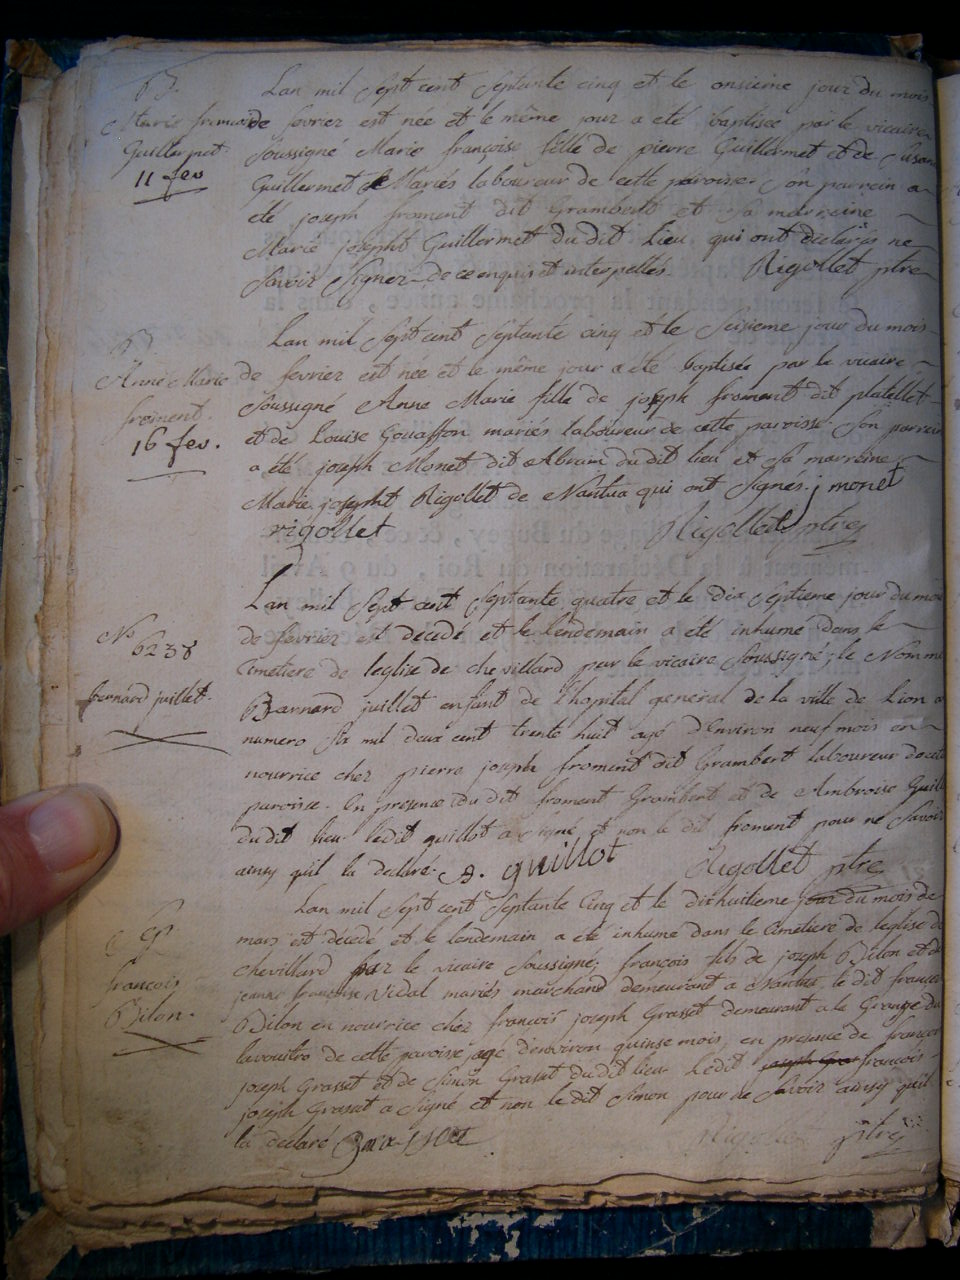 B.
Marie francoise
Guillermet
11 fev
Lan mil Sept cent Septante cinq et le onsieme jour du mois
de fevrier est née et le même jour a été baptisée par le vicaire
Soussigné Marie françoise fille de pierre Guillermet et de Susane
Guillermet Mariés laboureur de cette paroisse. Son parrain a
été joseph froment dit Grambert et Sa marreine
Marie josepht Guillermet du dit Lieu qui ont declarés ne
Savoir Signer de ce enquis et interpellés. Rigollet ptre
B
Anne Marie
froment
16 fev.
Lan mil Sept cent Septante cinq et le Seisieme jour du mois
de fevrier est née et le même jour a été baptisée par le vicaire
Soussigné Anne Marie fille de joseph froment dit platellet
et de Louise Gouaffon mariés laboureur de cette paroisse. Son parrein
a été joseph Monet dit Abram du dit lieu et Sa marreine
Marie josepht Rigollet de Nantua qui ont Signés. j monet
rigollet Rigollet ptre
No
6238
bernard juillet
Lan mil Sept cent Septante quatre et le dix Septieme jour du mois
de fevrier est decedé et le lendemain a été inhumé dans le
Cimetiere de leglise de chevillard par le vicaire Soussigné; le Nommé
Barnard juillet enfant de l'hopital general de la ville de Lion a
numero Six mil deux cent trente huit agé d'Environ neuf mois en
nourrice chez pierre joseph froment dit Grambert laboureur de cette
paroisse. En presence du dit froment Grambert et de Ambroise Guill
du dit lieu. ledit quillot a Signé et non le dit froment pour ne Savoir
ainsy qu'il la declaré. A. guillot Rigollet ptre
françois
Bilon.
Lan mil Sept cent Septante Cinq et le dixhuitieme jour du mois de
mars est décedé et le lendemain a été inhumé dans le Cimetiere de leglise de
Chevillard par le vicaire Soussigné; françois fils de joseph Bilon et de
jeanne françoise Vidal mariés marchand demeurant a Nantua, le dit francois
Bilon en nourrice chez francois joseph Grasset demeurant a la Grange du
lavouitro de cette paroisse agé d'environ quinse mois, en presence de francois
joseph Grasset et de Simon Grasset du dit lieu. Ledit francois
joseph Grasset a Signé et non le dit Simon pour ne Savoir ainsy quil
la declaré Rigollet ptre